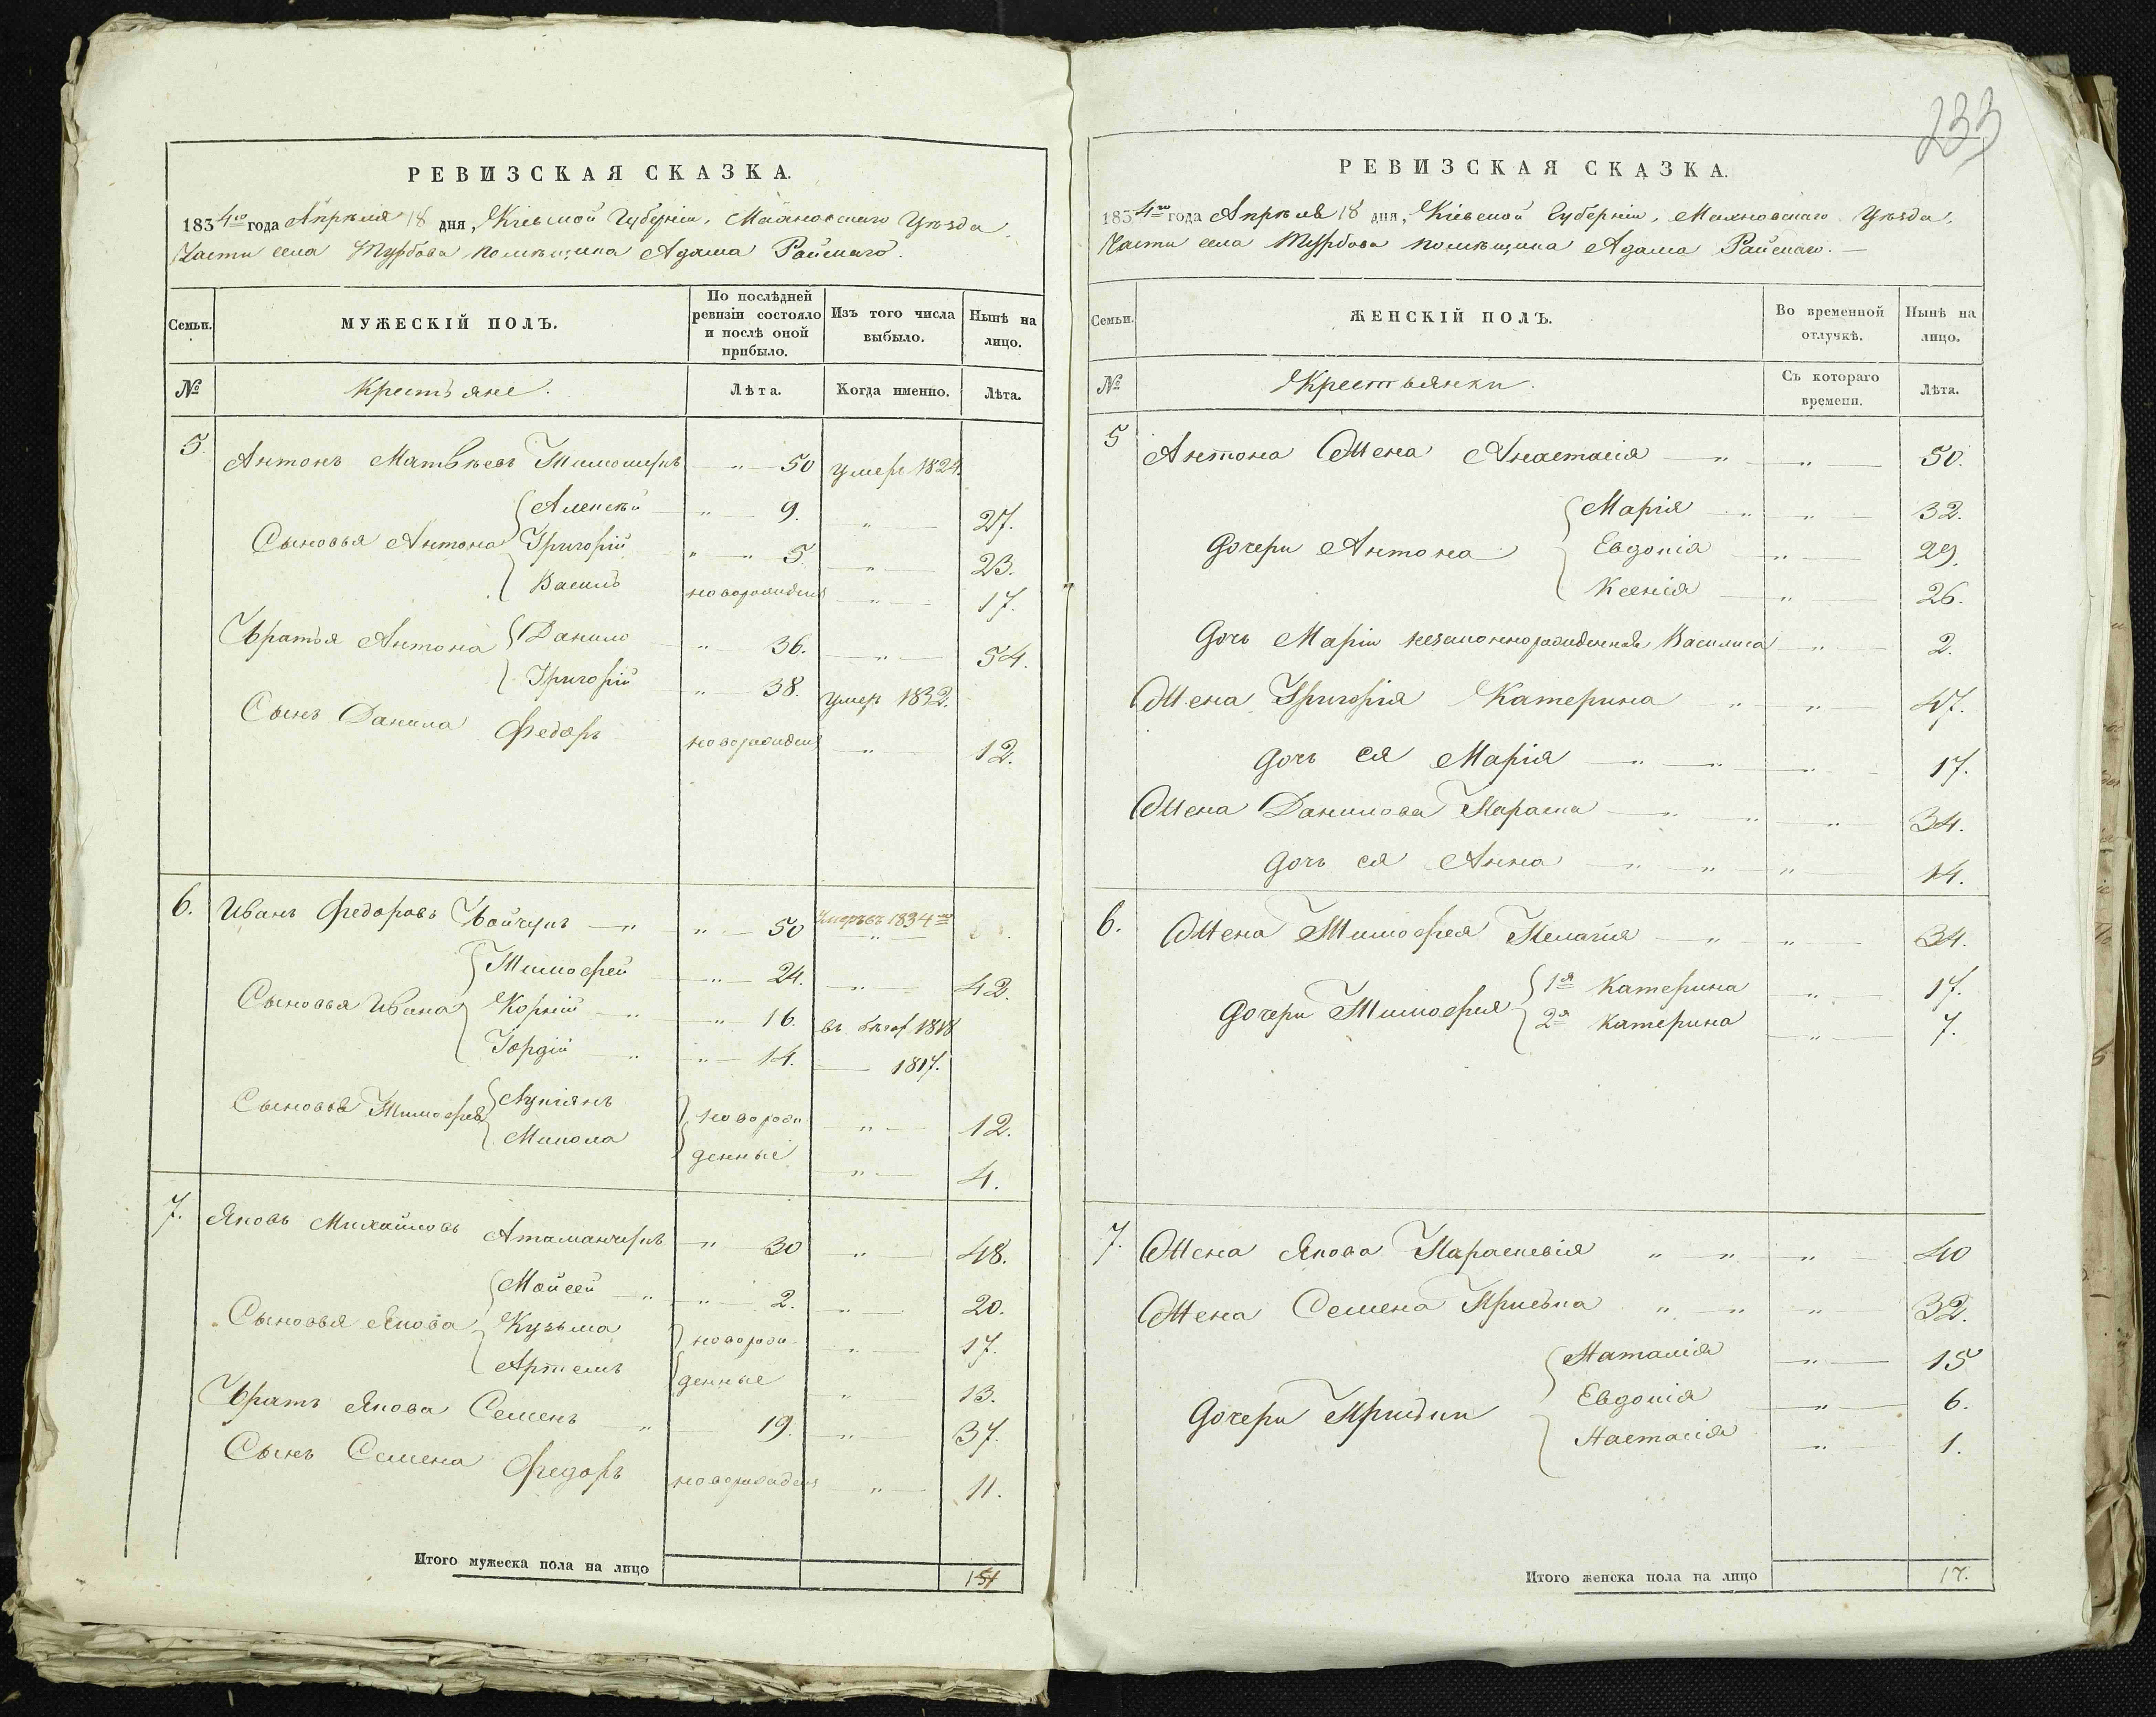 233
РЕВИЗСКАЯ СКАЗКА.
1834го года Апрѣля 18 дня, Кіевской Губерніи, Махновскаго Уѣзда,
Части села Турбова помѣщика Адама Райскаго.
Семьи.
МУЖЕСКІЙ ПОЛЪ.
По послѣдней ревизіи состояло и послѣ оной прибыло.
Изъ того числа выбыло.
Нынѣ на лицо.
№
Крестьяне.
Лѣта.
Когда именно.
Лѣта.
5. Антонъ Матвѣевъ Тимошукъ " 50 умеръ 1824.
Сыновья Антона
Алексѣй " 9. " 27.
Григорій " " 5. " 23.
Василь новорожденъ " 17.
Братья Антона
Данило " 36. " 54.
Григорій " 38. умеръ 1832.
Сынъ Данила Федоръ новорожденъ " 12.
6. Иванъ Федоровъ Бойчукъ " " 50 Умеръ въ 1834го
Сыновья Ивана
Тимофей " 24. " 42.
Корній " " 16. въ бѣгах 1818
Гордій " " 14. 1817.
Сыновья Тимофея
Лукіянъ
Микола
новорож
денные
" 12.
" 4.
7. Яковъ Михайловъ Атаманчукъ " 30 " 48.
Сыновья Якова
Мойсей " " 2. " 20.
Кузьма новорож- " 17.
Артемъ денные " 13.
Братъ Якова Семенъ " 19. " 37.
Сынъ Семена Федоръ новорожденъ " 11.
Итого мужеска пола на лицо
РЕВИЗСКАЯ СКАЗКА.
1834го года Апрѣля 18 дня, Кіевской Губерніи, Махновскаго Уѣзда,
Части села Турбова помѣщика Адама Райскаго.
Семьи.
ЖЕНСКІЙ ПОЛЪ.
Во временной отлучкѣ.
Нынѣ на лицо.
№
Крестьянки.
Съ котораго времени.
Лѣта.
5 Антона Жена Анастасія " " 50.
Дочери Антона
Марія " " 32.
Евдокія " 29.
Ксенія " 26.
Дочь Маріи незаконнорожденная Василиса " 2.
Жена Григорія Катерина " " 47.
Дочь ея Марія " " " 17.
Жена Данилова Параска " " " 34.
Дочь ея Анна " " " 14.
6. Жена Тимофея Пелагія " " 34.
Дочери Тимофея
1я Катерина " 17.
2я Катерина " 7.
7. Жена Якова Параскевія " " " 40
Жена Семена Приська " " " 32.
Дочери Приськи
Наталія " 15
Евдокія " 6.
Настасія " 1.
Итого женска пола на лицо 17.